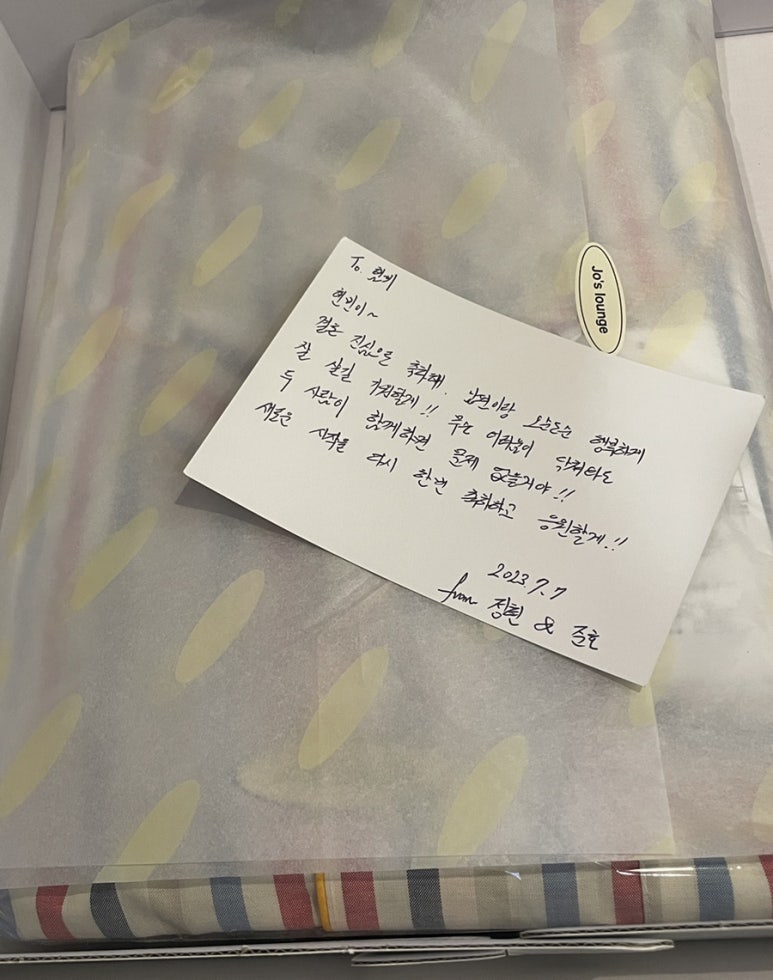 To. 현비
현비야~
결혼 진심으로 축하해. 남편이랑 오손도손 행복하게
잘 살길 기원할게!! 무슨 어려움이 닥쳐와도
두 사람이 함께하면 문제 없을거야!!
새로운 시작을 다시 한번 축하하고 응원할게!!
2023.7.7
from 정현 & 준호
Jo's lounge